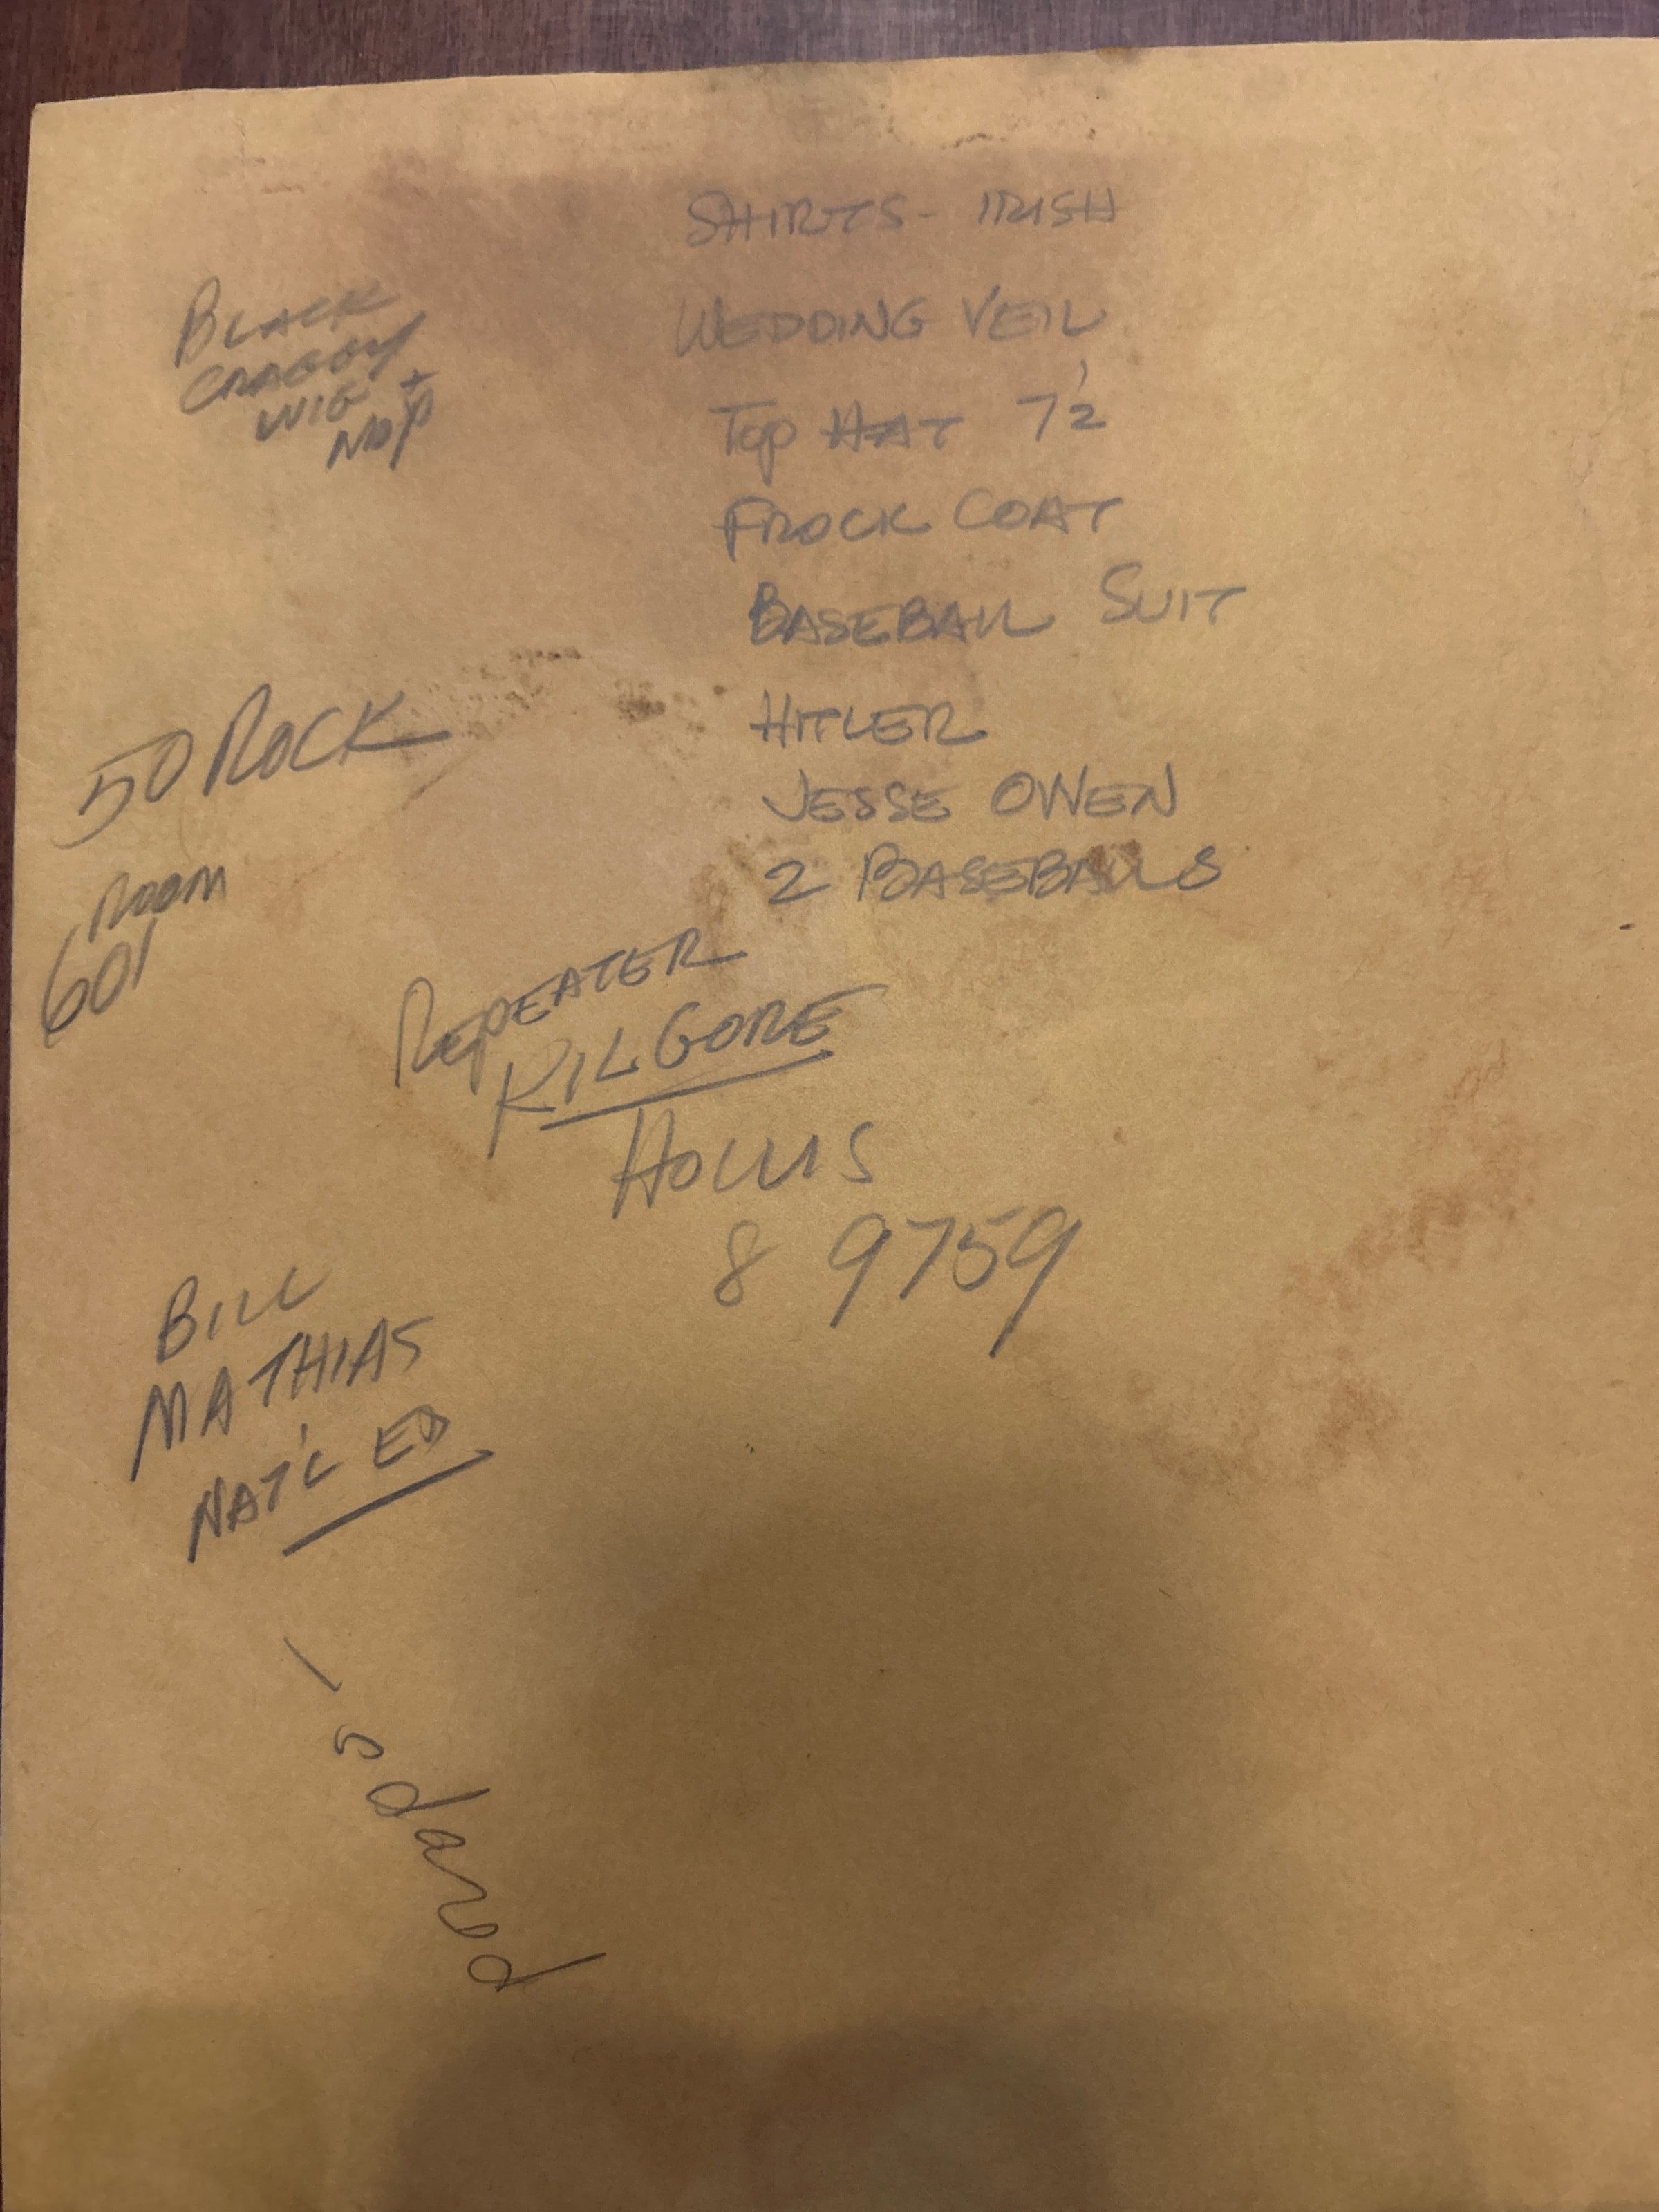 SHIRTS - IRISH
WEDDING VEIL
TOP HAT 7 1/2
FROCK COAT
BASEBALL SUIT
HITLER
JESSE OWEN
2 BASEBALLS
BLACK
CRAGGY
WIG +
50 ROCK
ROOM
601
REPEATER
KILGORE
HOLLIS
8 9759
BILL
MATHIAS
NAT'L ED